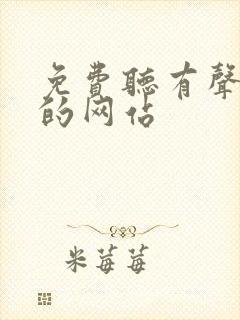 免費聽有聲
的网站
米莓莓